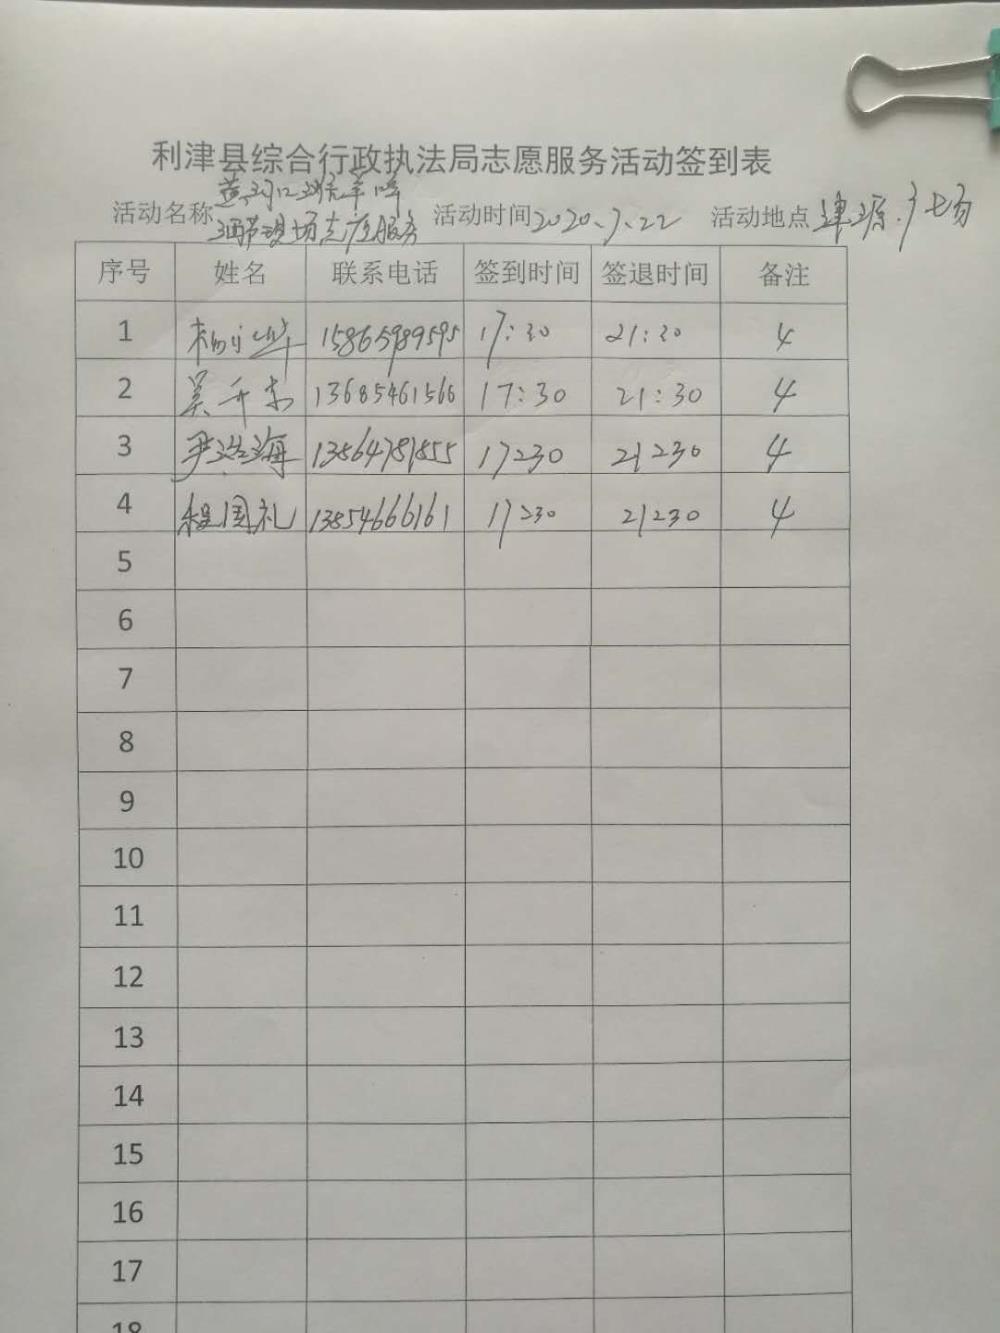 利津县综合行政执法局志愿服务活动签到表
黄河口
活动名称 酒节现场志愿服务 活动时间 2020.7.22 活动地点 津源广场
序号 姓名 联系电话 签到时间 签退时间 备注
1 杨 15865989595 17:30 21:30 4
2 吴 13685461566 17:30 21:30 4
3 尹浩海 13864781855 17:30 21:30 4
4 程国礼 13854666161 17:30 21:30 4
5
6
7
8
9
10
11
12
13
14
15
16
17
18